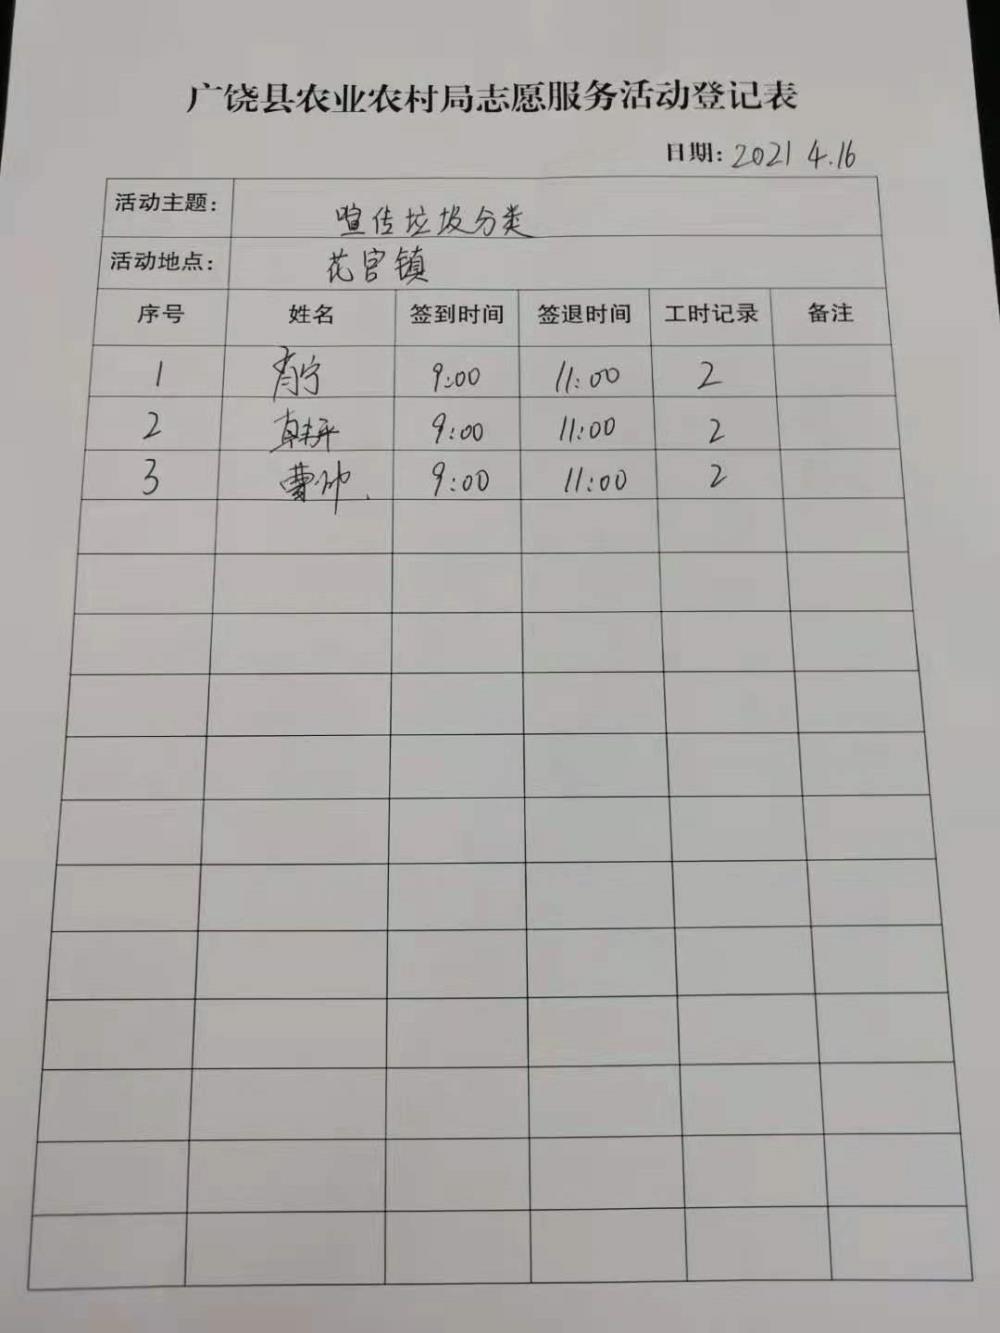 广饶县农业农村局志愿服务活动登记表
日期: 2021 4.16
活动主题: 喧传垃圾分类
活动地点: 花官镇
序号 姓名 签到时间 签退时间 工时记录 备注
1 肖宁 9:00 11:00 2
2 9:00 11:00 2
3 曹帅 9:00 11:00 2